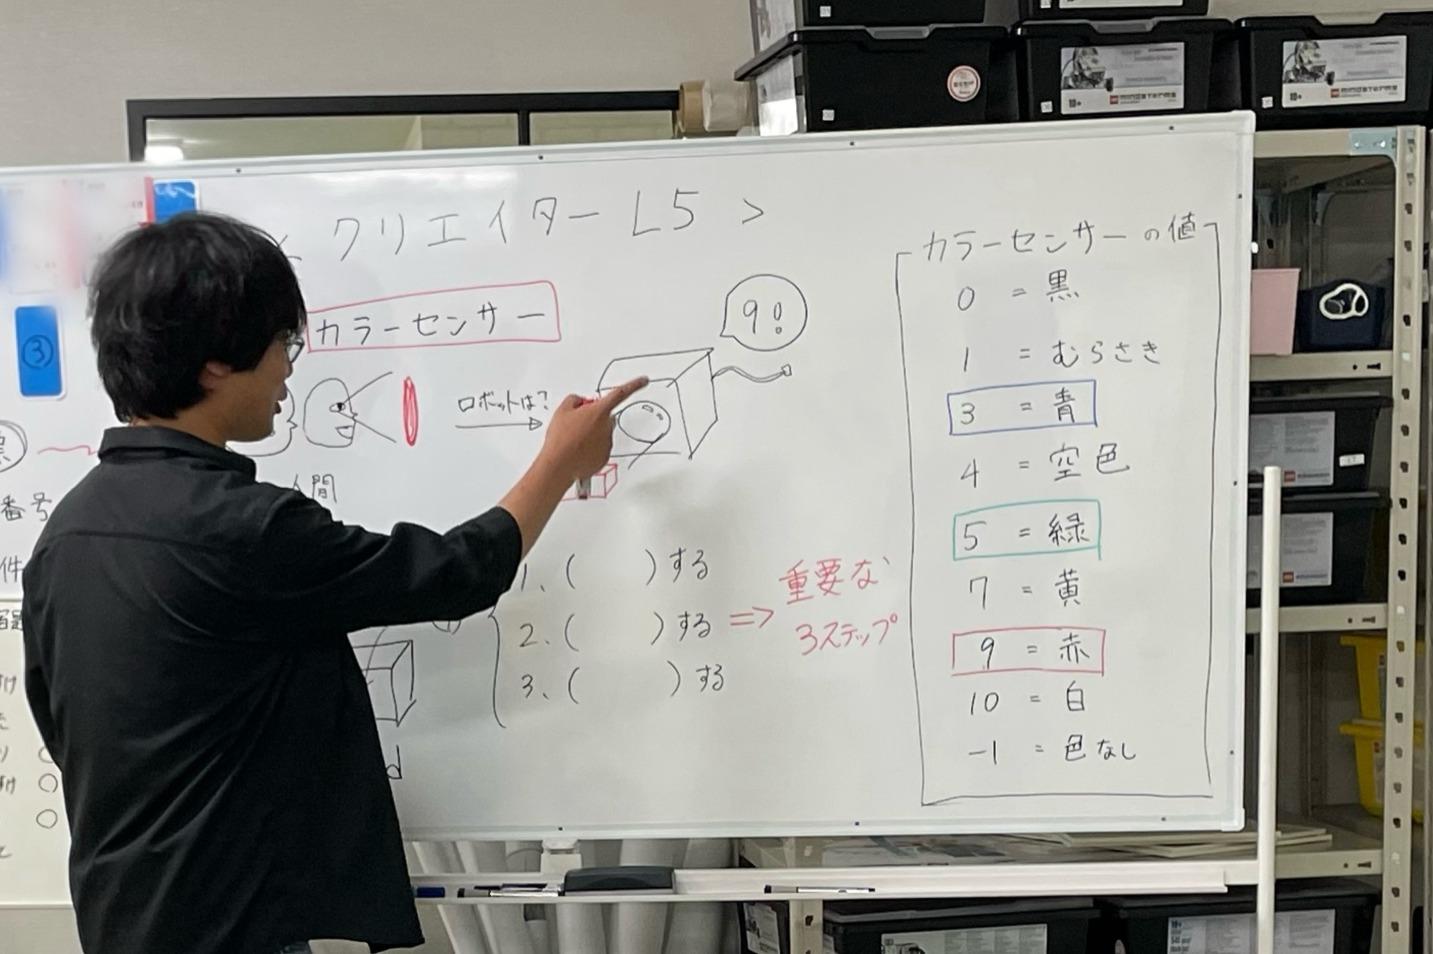 クリエイター L5 >
カラーセンサー
9!
ロボットは?
人間
③
番号
件
1、( )する
2、( )する
3、( )する
=> 重要な
3ステップ
d
カラーセンサーの値
0 = 黒
1 = むらさき
3 = 青
4 = 空色
5 = 緑
7 = 黄
9 = 赤
10 = 白
-1 = 色なし
10+ mindstorms
10+ mindstorms